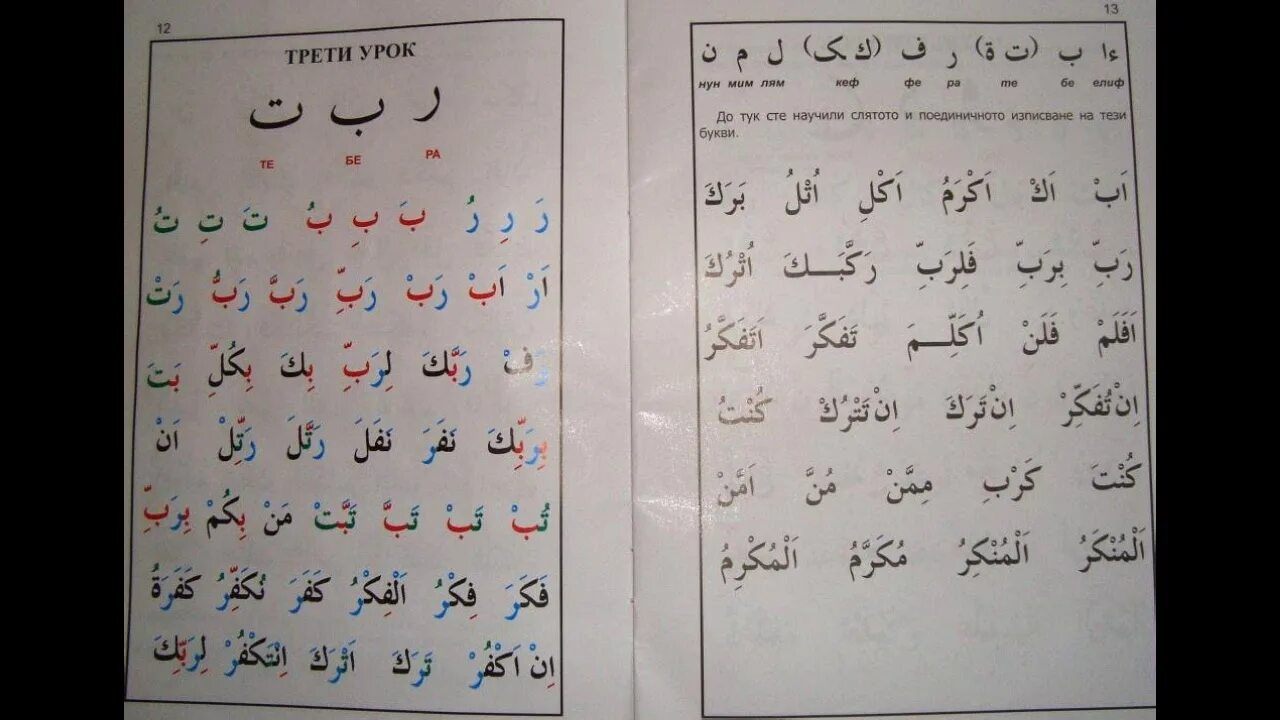 12
ТРЕТИ УРОК
ر ب ت
ТЕ БЕ РА
رَ رِ رُ بَ بِ بُ تَ تِ تُ
اَرْ اَبْ رَبْ رَبِّ رَبَّ رَبُّ رَتْ
رَفْ رَبَّكَ لِرَبِّ بِكَ بِكُلِّ بَتَ
بِرَبِّكَ نَفَرَ نَفَلَ رَتَّلَ رَتِّلْ اَنْ
تُبْ تَبْ تَبَّ تَبَّتْ مَنْ بِكُمْ بِرَبِّ
فَكَرَ فِكْرُ اَلْفِكْرُ كَفَرَ نُكَفِّرُ كَفَرَةُ
اِنْ اَكْفُرْ تَرَكَ اَتْرَكَ اِنْتَكْفُرْ لِرَبِّكَ
13
ءا ب (ت ة) ر ف (ك ک) ل م ن
нун мим лям кеф фе ра те бе елиф
До тук сте научили слятото и поединичното изписване на тези
букви.
اَبْ اَكْ اَكْرَمُ اَكْلِ اُتْلُ بَرَكَ
رَبِّ بِرَبِّ فَلِرَبِّ رَكَّبَـــكَ اُتْرُكَ
اَفَلَمْ فَلَنْ اُكَلِّـــمَ تَفَكَّرَ اَتَفَكَّرُ
اِنْ تُفَكِّرْ اِنْ تَرَكَ اِنْ تَتْرُكْ كُنْتُ
كُنْتَ كَرْبِ مِمَّنْ مُنَّ اَمَّنْ
اَلْمُنْكَرُ اَلْمُنْكِرُ مُكَرَّمُ اَلْمُكْرِمُ